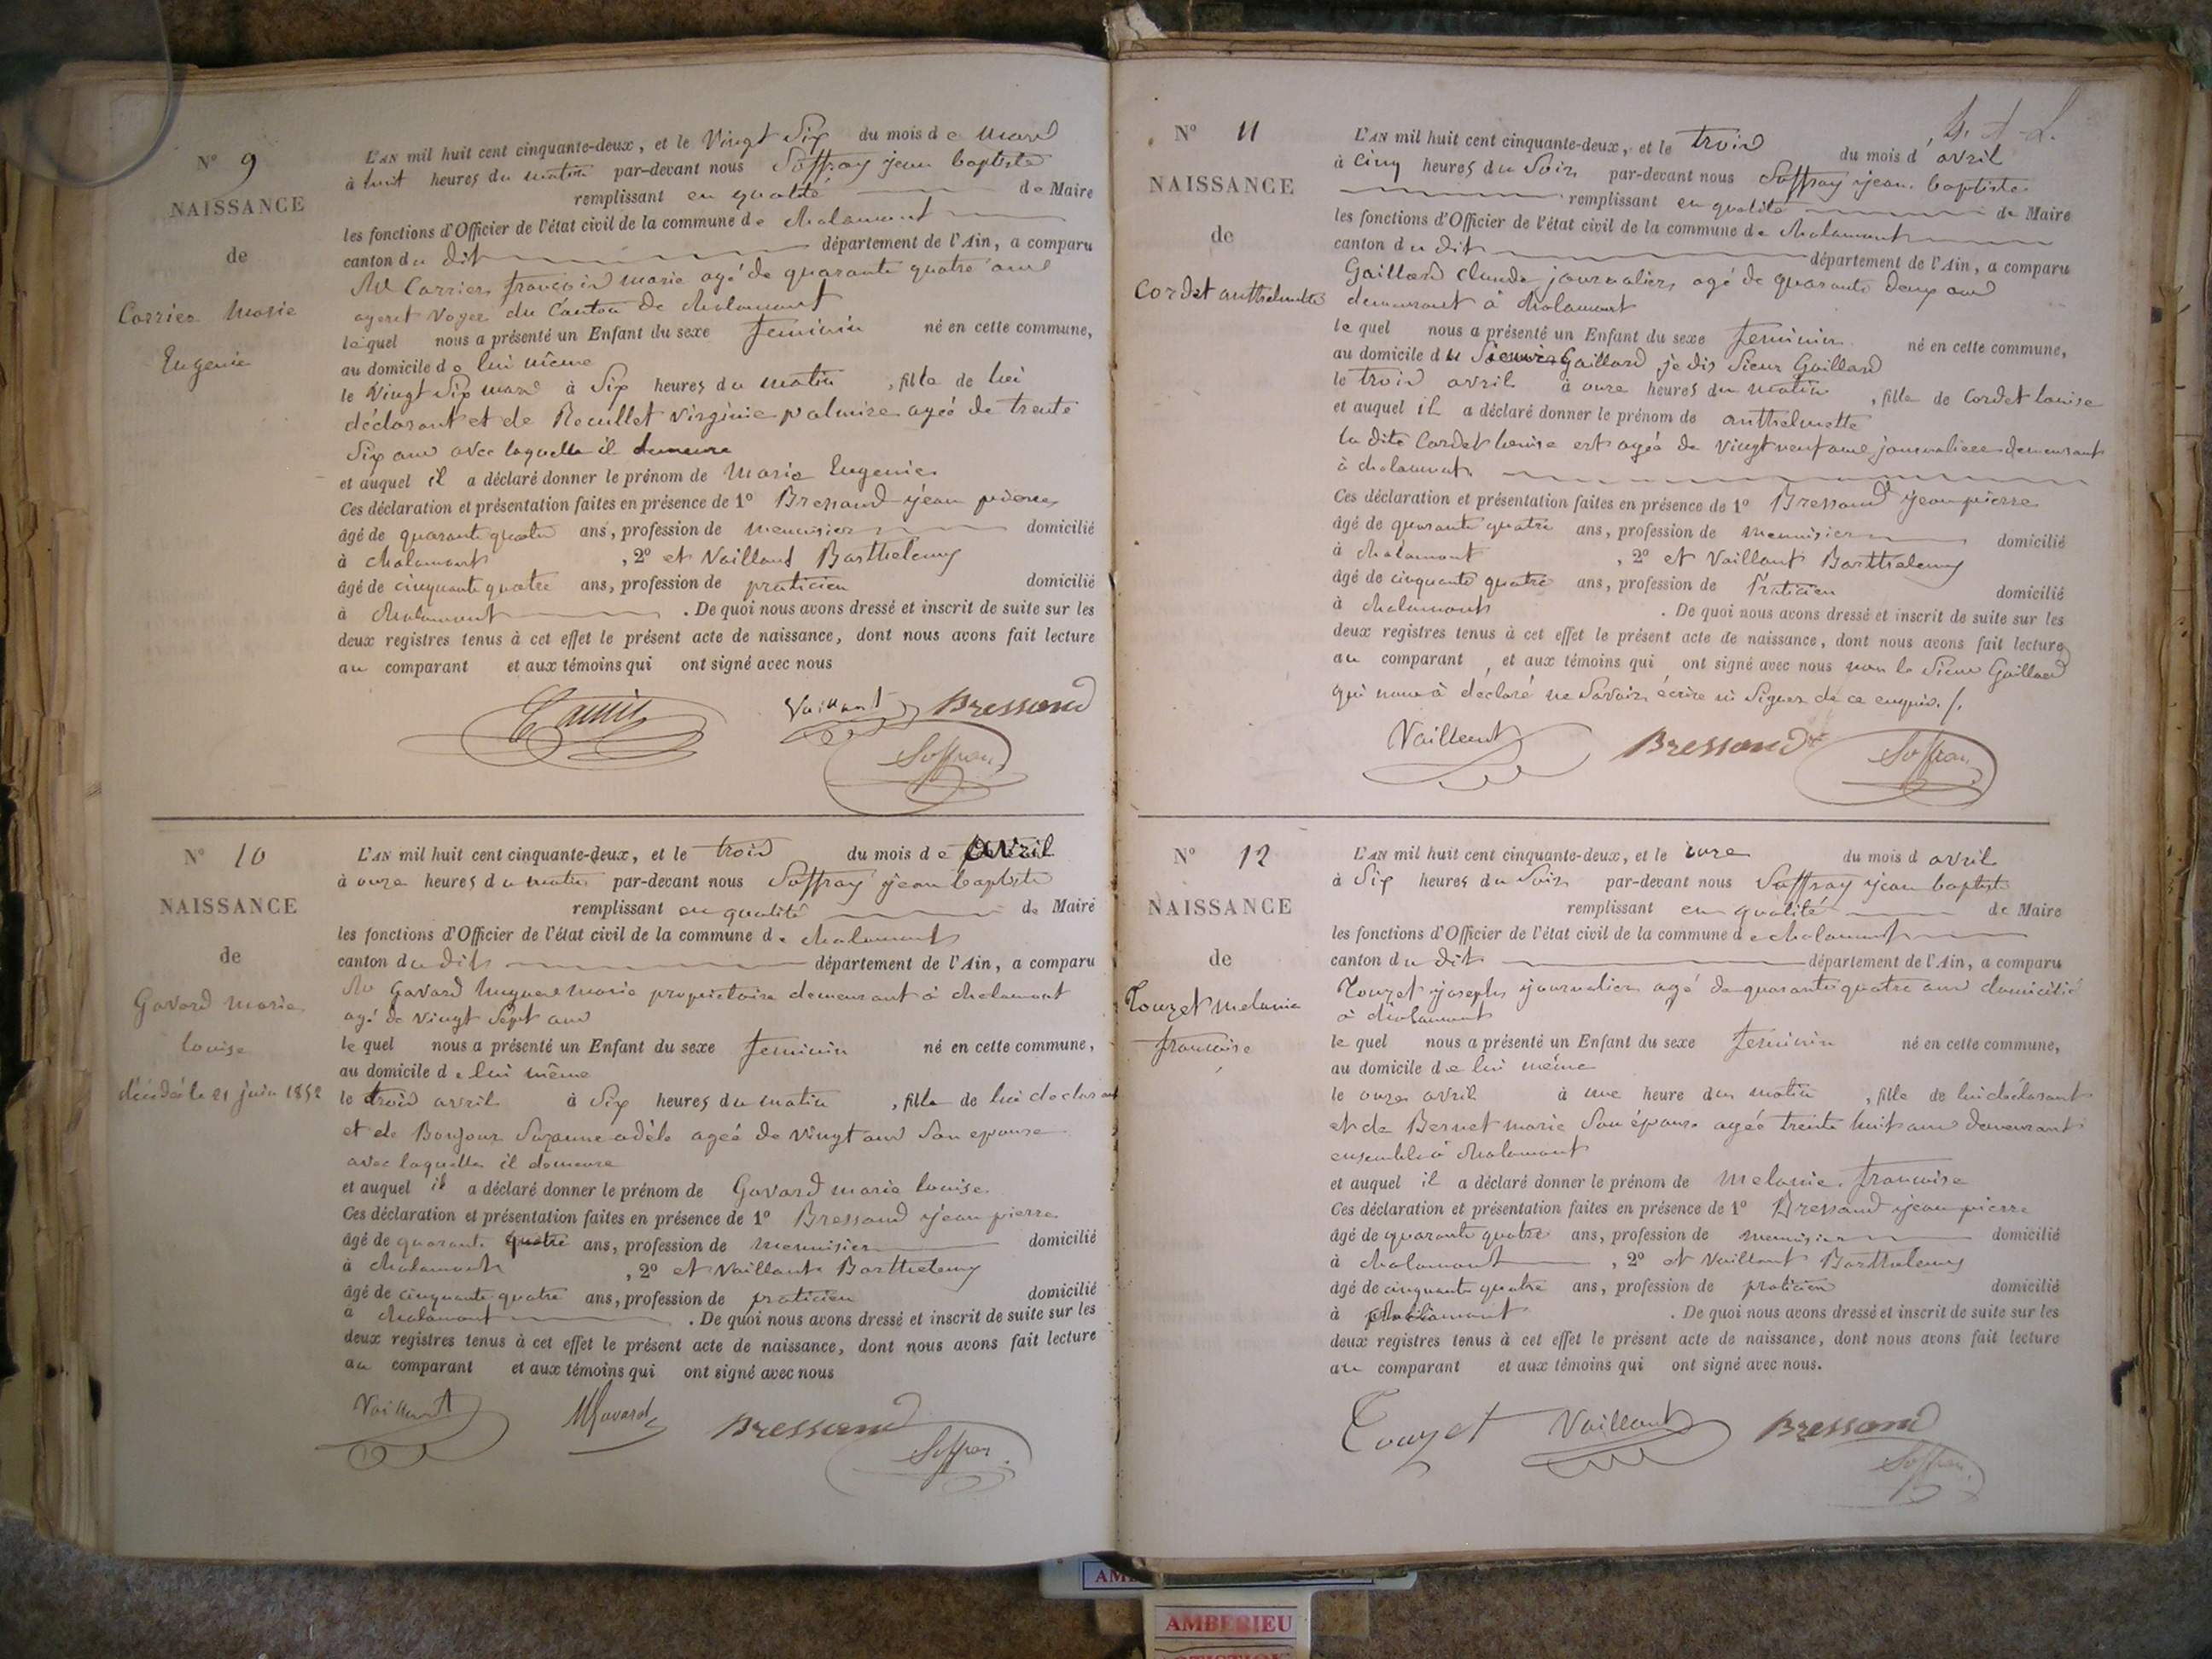 N° 9
NAISSANCE
de
Carrier Marie
Eugenie
L'AN mil huit cent cinquante-deux, et le Vingt Six du mois de Mars
à huit heures du matin par-devant nous Soffray jean baptiste
remplissant en qualité de Maire
les fonctions d'Officier de l'état civil de la commune de chalamont
canton du dit département de l'Ain, a comparu
Mr Carrier françois marie agé de quarante quatre ans
agent Voyer du Canton de chalamont
lequel nous a présenté un Enfant du sexe feminin né en cette commune,
au domicile de lui même
le Vingt Six mars à Six heures du matin, fille de lui
déclarant et de Recullet Virginie palmire ageé de trente
Six ans avec laquelle il demeure
et auquel il a déclaré donner le prénom de Marie Eugenie
Ces déclaration et présentation faites en présence de 1° Bressand jean pierre
âgé de quarante quatre ans, profession de menuisier domicilié
à chalamont, 2° et Vaillant Barthelemy
âgé de cinquante quatre ans, profession de praticien domicilié
à chalamont. De quoi nous avons dressé et inscrit de suite sur les
deux registres tenus à cet effet le présent acte de naissance, dont nous avons fait lecture
au comparant et aux témoins qui ont signé avec nous
Vaillant Bressand
Soffray
N° 10
NAISSANCE
de
Gavard marie
louise
décédée le 21 juin 1852
L'AN mil huit cent cinquante-deux, et le trois du mois de avril
à onze heures du matin par-devant nous Soffray jean baptiste
remplissant en qualité de Maire
les fonctions d'Officier de l'état civil de la commune de chalamont
canton du dit département de l'Ain, a comparu
Mr Gavard marie propriétaire demeurant à chalamont
agé de Vingt Sept ans
lequel nous a présenté un Enfant du sexe feminin né en cette commune,
au domicile de lui même
le trois avril à Six heures du matin, fille de lui declarant
et de Bonjour Suzanne adèle ageé de Vingt ans Son epouse
avec laquelle il demeure
et auquel il a déclaré donner le prénom de Gavard marie louise
Ces déclaration et présentation faites en présence de 1° Bressand jean pierre
âgé de quarante quatre ans, profession de menuisier domicilié
à chalamont, 2° et Vaillant Barthelemy
âgé de cinquante quatre ans, profession de praticien domicilié
à chalamont. De quoi nous avons dressé et inscrit de suite sur les
deux registres tenus à cet effet le présent acte de naissance, dont nous avons fait lecture
au comparant et aux témoins qui ont signé avec nous
Vaillant MGavard Bressand
Soffray
N° 11
NAISSANCE
de
Cordet anthelmette
L'AN mil huit cent cinquante-deux, et le trois du mois d'avril
à cinq heures du Soir par-devant nous Soffray jean baptiste
remplissant en qualité de Maire
les fonctions d'Officier de l'état civil de la commune de chalamont
canton du dit département de l'Ain, a comparu
Gaillard claude, journalier agé de quarante deux ans
demeurant à chalamont
lequel nous a présenté un Enfant du sexe feminin né en cette commune,
au domicile du Gaillard je dis Sieur Gaillard
le trois avril à onze heures du matin, fille de Cordet louise
et auquel il a déclaré donner le prénom de anthelmette
la dite Cordet louise est ageé de Vingt neuf ans journaliere demeurant
à chalamont
Ces déclaration et présentation faites en présence de 1° Bressand jean pierre
âgé de quarante quatre ans, profession de menuisier domicilié
à chalamont, 2° et Vaillant Barthelemy
âgé de cinquante quatre ans, profession de Praticien domicilié
à chalamont. De quoi nous avons dressé et inscrit de suite sur les
deux registres tenus à cet effet le présent acte de naissance, dont nous avons fait lecture
au comparant, et aux témoins qui ont signé avec nous non le Sieur Gaillard
qui nous à déclaré ne Savoir écrire ni Signer de ce enquis ./.
Vaillant Bressand Soffray
N° 12
NAISSANCE
de
Touzet melanie
francoise
L'AN mil huit cent cinquante-deux, et le onze du mois d avril
à Six heures du Soir par-devant nous Soffray jean baptiste
remplissant en qualité de Maire
les fonctions d'Officier de l'état civil de la commune de chalamont
canton du dit département de l'Ain, a comparu
Touzet joseph journalier agé de quarante quatre ans domicilié
à chalamont
lequel nous a présenté un Enfant du sexe feminin né en cette commune,
au domicile de lui même
le onze avril à une heure du matin, fille de lui déclarant
et de Bernet marie Son épouse ageé trente huit ans demeurant
ensemble à chalamont
et auquel il a déclaré donner le prénom de Melanie francoise
Ces déclaration et présentation faites en présence de 1° Bressand jean pierre
âgé de quarante quatre ans, profession de menuisier domicilié
à chalamont, 2° et Vaillant Barthelemy
âgé de cinquante quatre ans, profession de praticien domicilié
à chalamont. De quoi nous avons dressé et inscrit de suite sur les
deux registres tenus à cet effet le présent acte de naissance, dont nous avons fait lecture
au comparant et aux témoins qui ont signé avec nous.
Touzet Vaillant Bressand
Soffray
AMBERIEU